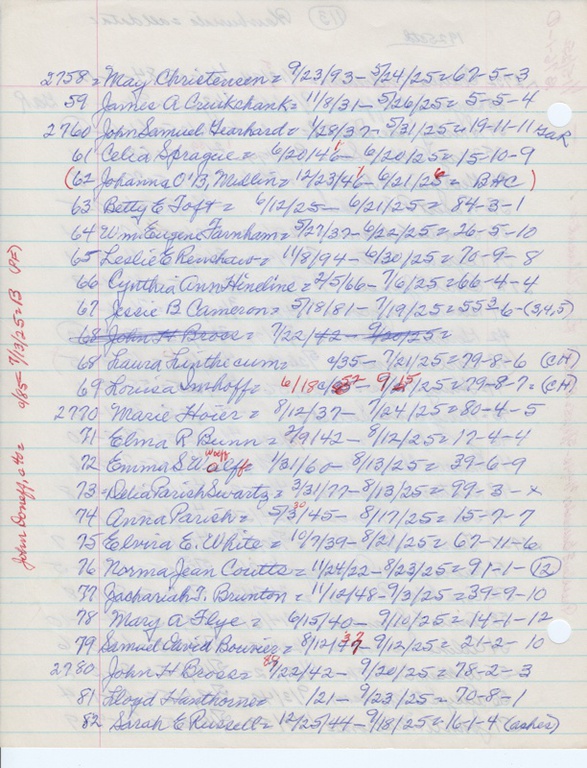 (113)
1925
2758 = May Christensen = 9/23/93 - 5/24/25 = 67-5-3
59 James A Cruikchank = 11/8/31 - 5/26/25 = 5-5-4
2760 John Samuel Gearhard = 1/28/37 - 5/31/25 = 19-11-11 GAR
61 Celia Sprague = 6/20/46 - 6/20/25 = 15-10-9
(62 Johanna O'B, Mullin = 12/23/46 - 6/21/25 = BHC)
63 Betty E Toft = 6/12/25 - 6/21/25 = 84-3-1
64 Wm Eugene Farnham = 5/27/37 - 6/22/25 = 26-5-10
65 Leslie E Renshaw = 11/8/94 - 6/30/25 = 70-9-8
66 Cynthia Ann Hineline = 2/5/66 - 7/6/25 = 66-4-4
67 Jessie B Cameron = 5/18/81 - 7/19/25 = 553-6-(3,4,5)
68 John H Bross = 7/22/42 - 9/20/25 =
68 Laura Linthecum = c/35 - 7/21/25 = 79-8-6 (CH)
69 Louisa Imhoff = 6/18 - 9/15/25 = 79-8-7 = (CH)
2770 Marie Hoier = 8/12/37 - 7/24/25 = 80-4-5
71 Elma R Bunn = 2/9/42 - 8/12/25 = 17-4-4
72 Emma S W 1/31/60 - 8/13/25 = 39-6-9
73 - Delia Parish Swartz = 3/31/77 - 8/13/25 = 99-3-x
74 Anna Parish = 5/30/45 - 8/17/25 = 15-7-7
75 Elvira E. White = 10/7/39 - 8/21/25 = 67-11-6
76 Norma Jean Coutts = 11/24/22 - 8/23/25 = 91-1-(12)
77 Zachariah T. Brunton = 11/12/48 - 9/3/25 = 39-9-10
78 Mary A Flye = 6/15/40 - 9/10/25 = 14-1-12
79 Samuel David Bouvier = 8/12/37 - 9/12/25 = 21-2-10
2780 John H Bross = 8/22/42 - 9/20/25 = 78-2-3
81 Lloyd Hawthorne = /21 - 9/23/25 = 70-8-1
82 Sarah E Russell = 12/25/44 - 9/18/25 = 16-1-4 (ashes)
John Doneff, a 40 = c/85 = 7/13/25 = B (PF)